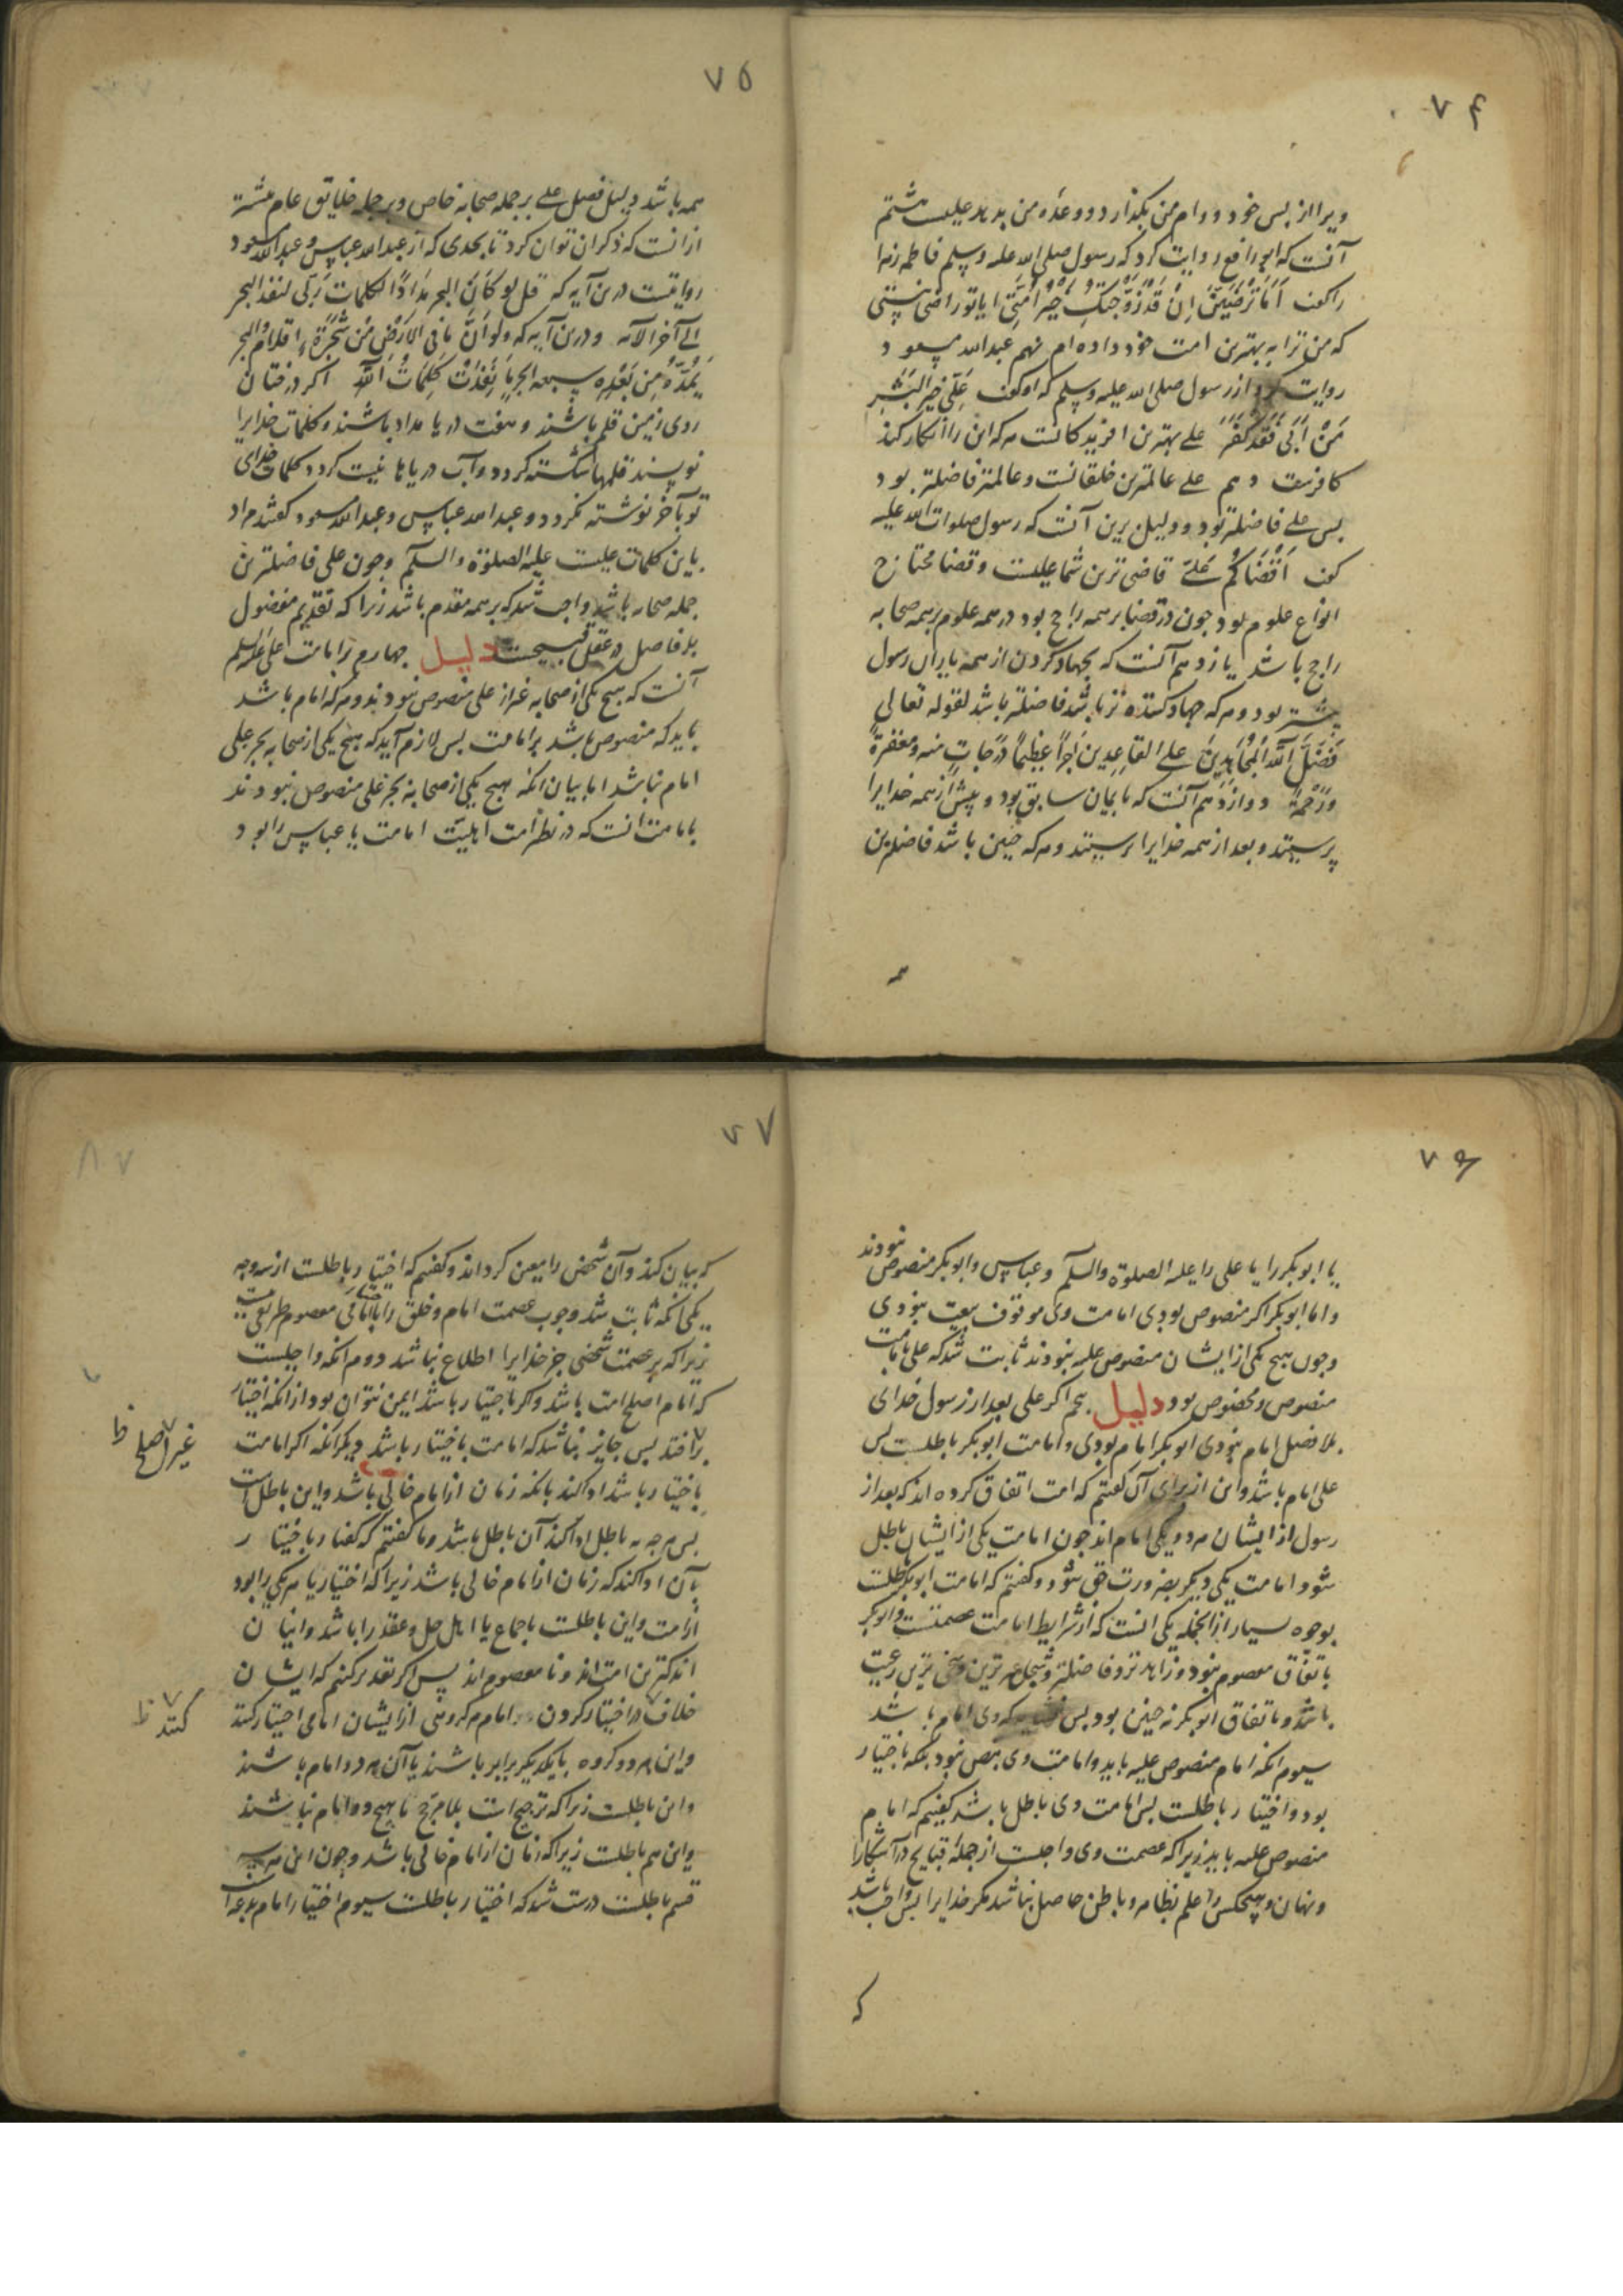 ۷۴
ویرا از بس خود و وام من بگذارد و وعده من بدهد علیست هشتم
آنست که ابو رافع روایت کرد که رسول صلی الله علیه وسلم فاطمه زهرا
را کفت اَمَا تَرْضَیْنَ اِنْ قَدْ زَوَّجْتُکِ خَیْرَ اُمَّتِی ایا تو راضی نیستی
که من ترا به بهترین امت خود داده ام نهم عبدالله مسعود
روایت کرد از رسول صلی الله علیه وسلم که او کفت عَلِیٌّ خَیْرُ الْبَشَرِ
مَنْ اَبَی فَقَدْ کَفَرَ علی بهترین افریدکانست هرکه این را انکار کند
کافرست دهم علی عالمترین خلقانست و عالمتر فاضلتر بود
بس علی فاضلتر بود و دلیل برین آنست که رسول صلوات الله علیه
کفت اَقْضَاکُمْ عَلِیٌّ قاضی ترین شما علیست و قضا محتاج
انواع علوم بود جون در قضا بر همه راجح بود در همه علوم بر همه صحابه
راجح باشد یازدهم آنست که بجهاد کردن از همه یاران رسول
بیشتر بود و هر که جهاد کننده تر باشد فاضلتر باشد لقوله تعالی
فَضَّلَ اللّٰهُ الْمُجَاهِدِینَ علی القَاعِدِینَ اَجْرًا عَظِیمًا دَرَجَاتٍ منه ومغفرةً
وَرَحْمَةً دوازدهم آنست که بایمان سابق بود و پیش از همه خدایرا
پرستید و بعد از همه خدایرا پرستید و هر که جنین باشد فاضلترین
همه
۷۵
همه باشد دلیل فضل علی بر جمله صحابه خاص و بر جمله خلایق عام بیشتر
ازانست که ذکر ان توان کرد تا بحدی که از عبدالله عباس و عبدالله مسعود
روایتست درین آیه که قل لو کَانَ البحر مِدَادًا لکلمات رَبِّی لنفد البحر
الی آخر الآیه و درین آیه که ولو اَنَّ مَا فِی الاَرْضِ مِنْ شَجَرَةٍ اقلام والبحر
یَمُدُّهُ مِنْ بَعْدِهِ سبعه ابحر مَا نَفِدَتْ کَلِمَاتُ اللّٰهِ اکر درختان
روی زمین قلم باشند و هفت دریا مداد باشند و کلمات خدایرا
نویسند قلمها شکسته کردد و آب دریاها نیست کردد و کلمات خدای
تو بآخر نوشته نکردد و عبدالله عباس و عبدالله مسعود کفتند مراد
باین کلمات علیست علیه الصلوة والسلم وجون علی فاضلترین
جمله صحابه باشد واجب شد که بر همه مقدم باشد زیرا که تقدیم مفضول
بر فاضل در عقل قبیحست دلیل جهارم بر امامت علی علیه السلم
آنست که هیج یکی از صحابه غیر از علی منصوص نبودند و هر که امام باشد
باید که منصوص باشد بر امامت بس لازم آید که هیج یکی از صحابه بجز علی
امام نباشد اما بیان انکه هیج یکی از صحابه بجز علی منصوص نبودند
بامامت انست که در نظر امت اهلیّت امامت یا عباس را بود
۷۶
یا ابوبکر را یا علی را علیه الصلوة والسلم و عباس و ابوبکر منصوص نبودند
و اما ابوبکر اکر منصوص بودی امامت وی موقوف بیعت نبودی
وجون هیج یکی از ایشان منصوص علیه نبودند ثابت شد که علی بامامت
منصوص و مخصوص بود دلیل بنجم اکر علی بعد از رسول خدای
بلا فصل امام نبودی ابوبکر امام بودی و امامت ابوبکر باطلست بس
علی امام باشد و این از برای آن کفتم که امت اتفاق کرده اند که بعد از
رسول از ایشان هر دو یکی امام اند جون امامت یکی از ایشان باطل
شود امامت یکی دیکر بضرورت حق شود و کفتم که امامت ابوبکر باطلست
بوجوه بسیار از انجمله یکی انست که از شرایط امامت عصمتست و ابوبکر
باتفاق معصوم نبود و زاهدتر و فاضلتر و شجاع ترین و سخی ترین رعیت
باشد و باتفاق ابوبکر نه جنین بود بس که وی امام باشد
سیوم انکه امام منصوص علیه باید و امامت وی بنص نبود بلکه باختیار
بود و اختیار باطلست بس امامت وی باطل باشد کفتیم که امام
منصوص علیه باید زیرا که عصمت وی واجبست از جمله قبایح در آشکارا
و نهان و هیجکس را علم بظاهر و باطن حاصل نباشد مکر خدایرا بس واجب باشد
که
۷۷
که بیان کند و آن شخص را معین کرداند و کفتیم که اختیار باطلست از سه وجه
یکی انکه ثابت شد وجوب عصمت امام و خلق را باختیار معصوم طریقی نیست
زیرا که بر عصمت شخصی جز خدایرا اطلاع نباشد دوم انکه واجبست
که امام اصلح امت باشد و اکر باختیار باشد ایمن نتوان بود از انکه اختیار
بر افتد بس جایز نباشد که امامت باختیار باشد دیکر انکه اکر امامت
غیر اصلح ظ
باختیار باشد ادا کند بانکه زمان از امام خالی باشد و این باطل است
بس هرجه به باطل ادا کند آن باطل باشد و ما کفتیم که کفتار باختیار
بآن ادا کند که زمان از امام خالی باشد زیرا که اختیار یا هر یکی را بود
از امت و این باطلست باجماع یا اهل حل و عقد را باشد و اینان
اندکترین امت اند و نا معصوم اند پس اکر تقدیر کنیم که ایشان
خلاف در اختیار کردن امام هر کروهی از ایشان امامی اختیار کنند
کنند ظ
و این هر دو کروه با یکدیکر برابر باشند یا آن هر دو امام باشند
و این باطلست زیرا که ترجیح است بلا مرجح یا هیج دو امام نباشند
و این هم باطلست زیرا که زمان از امام خالی باشد وجون این هر سه
قسم باطلست درست شد که اختیار باطلست سیوم اختیار امام